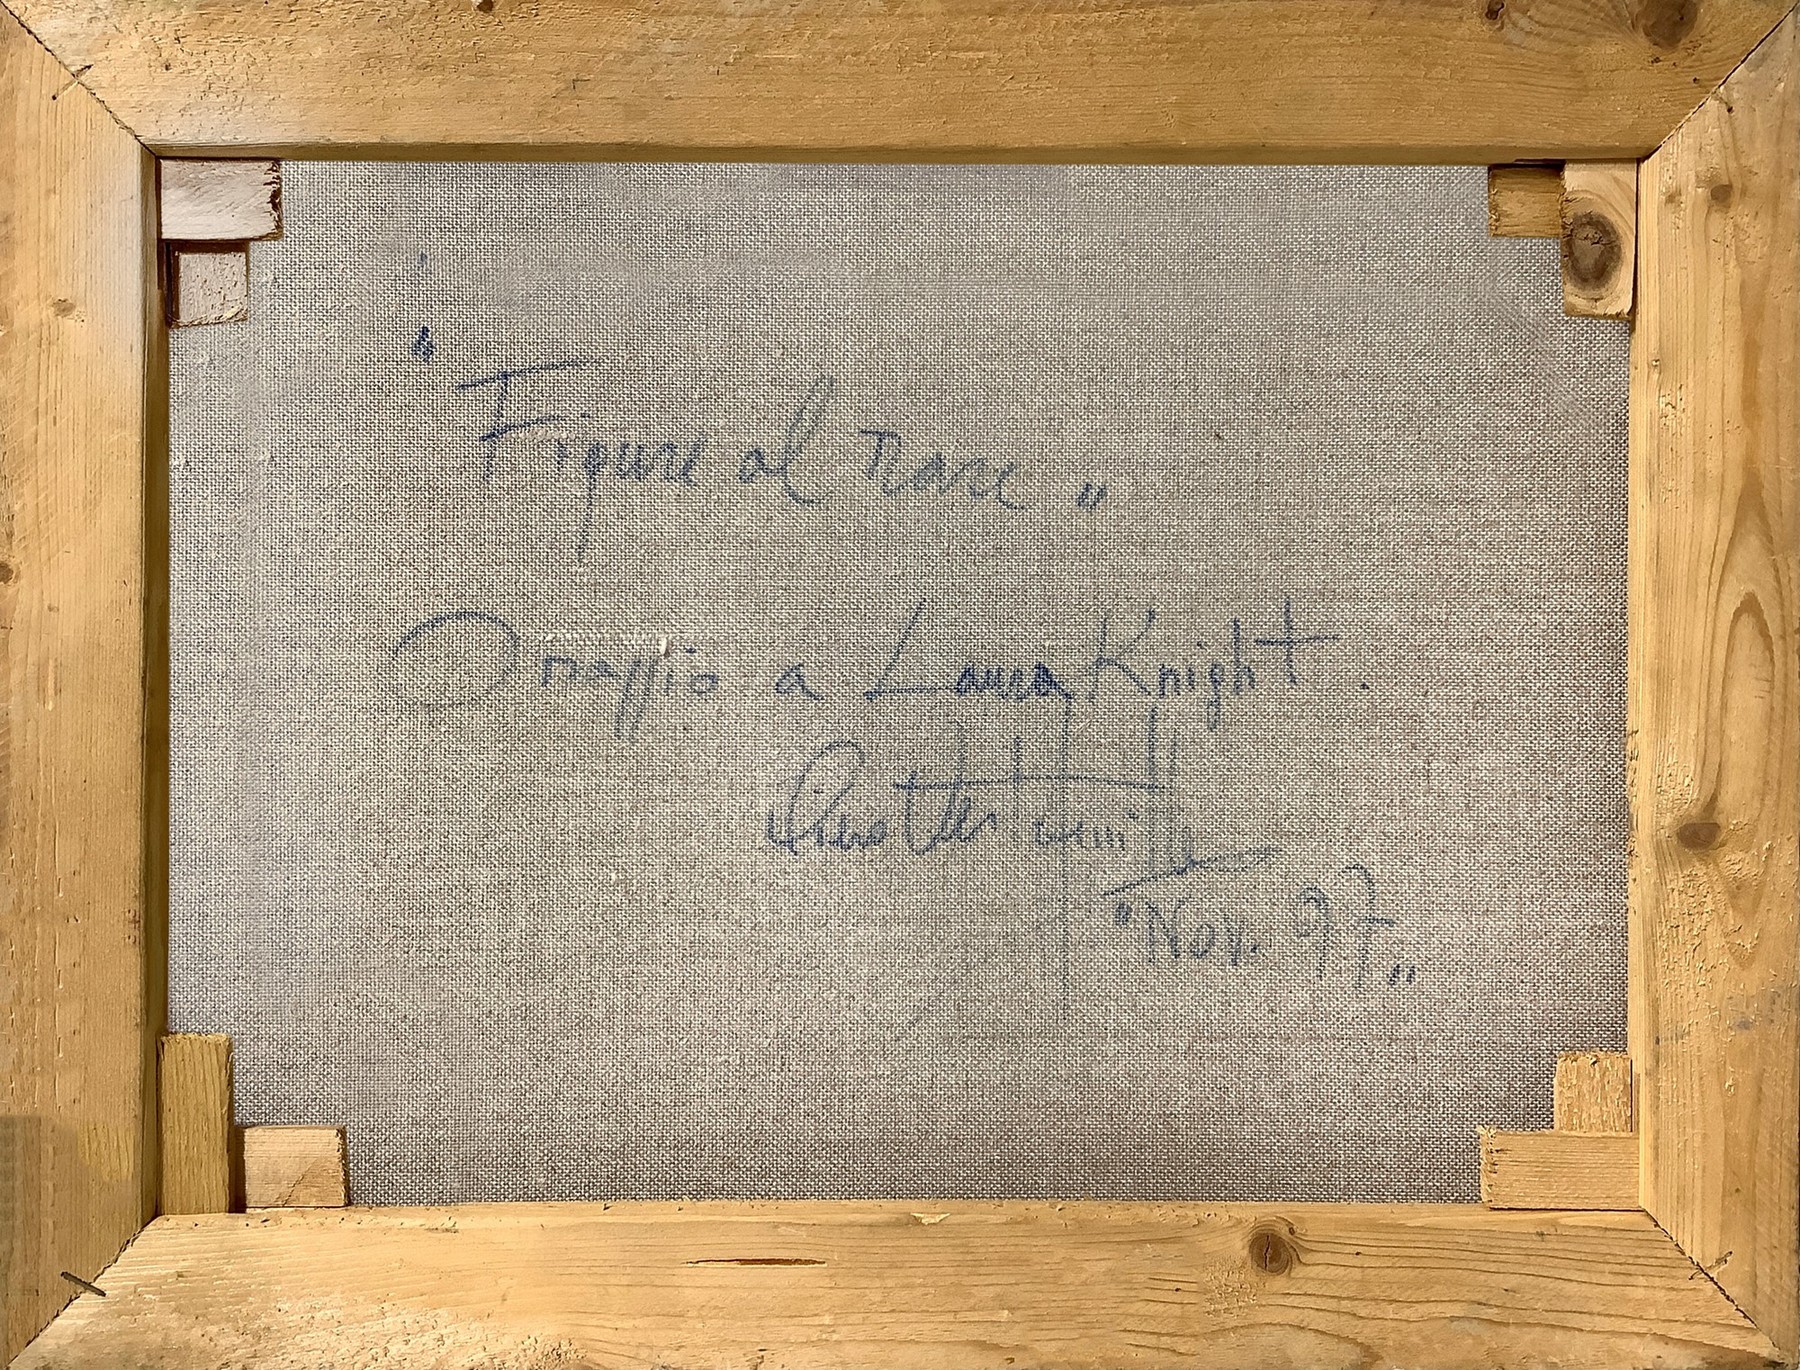 "Figure al mare"
Omaggio a Laura Knight.
Piero
"Nov. 97"